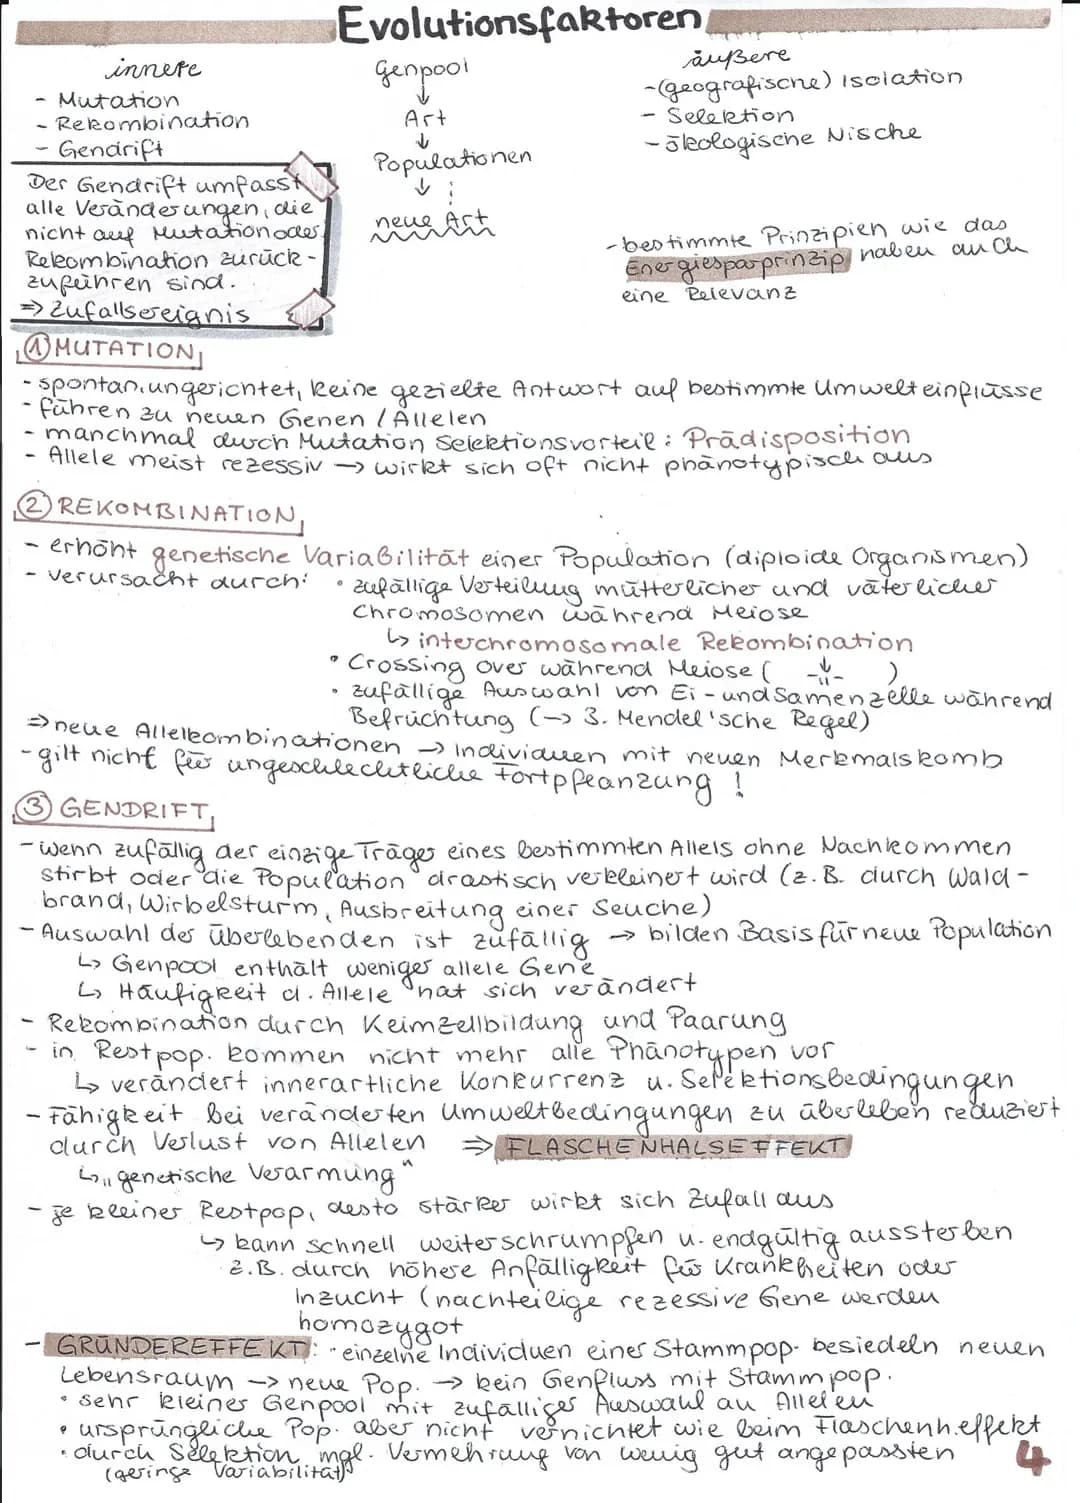 Evolutionsfaktoren
innere
- Mutation
- Rekombination
- Gendrift
Genpool
↓
Art
↓
Populationen
↓ ⋮
neue Art
äußere
-(geografische) Isolation
- Selektion
- ökologische Nische
-bestimmte Prinzipien wie das
Energiesparprinzip haben auch
eine Relevanz
Der Gendrift umfasst
alle Veränderungen, die
nicht auf Mutation oder
Rekombination zurück-
zuführen sind.
=> Zufallsereignis
① MUTATION
- spontan, ungerichtet, keine gezielte Antwort auf bestimmte Umwelteinflüsse
- führen zu neuen Genen / Allelen
- manchmal durch Mutation Selektionsvorteil: Prädisposition
- Allele meist rezessiv → wirkt sich oft nicht phänotypisch aus
② REKOMBINATION
- erhöht genetische Variabilität einer Population (diploide Organismen)
- verursacht durch: • zufällige Verteilung mütterlicher und väterlicher
Chromosomen während Meiose
↳ interchromosomale Rekombination
• Crossing over während Meiose ( -"- )
• zufällige Auswahl von Ei- und Samenzelle während
Befruchtung (→ 3. Mendel'sche Regel)
=> neue Allelkombinationen → Individuen mit neuen Merkmalskomb
- gilt nicht für ungeschlechtliche Fortpflanzung !
③ GENDRIFT
- wenn zufällig der einzige Träger eines bestimmten Allels ohne Nachkommen
stirbt oder die Population drastisch verkleinert wird (z.B. durch Wald-
brand, Wirbelsturm, Ausbreitung einer Seuche)
- Auswahl der Überlebenden ist zufällig → bilden Basis für neue Population
↳ Genpool enthält weniger allele Gene
↳ Häufigkeit d. Allele hat sich verändert
- Rekombination durch Keimzellbildung und Paarung
- in Restpop. kommen nicht mehr alle Phänotypen vor
↳ verändert innerartliche Konkurrenz u. Selektionsbedingungen
- Fähigkeit bei veränderten Umweltbedingungen zu überleben reduziert
durch Verlust von Allelen => FLASCHENHALSEFFEKT
↳ „genetische Verarmung"
- je kleiner Restpop, desto stärker wirkt sich Zufall aus
↳ kann schnell weiterschrumpfen u. endgültig aussterben
z.B. durch höhere Anfälligkeit für Krankheiten oder
Inzucht (nachteilige rezessive Gene werden
homozygot
- GRÜNDEREFFEKT: • einzelne Individuen einer Stammpop. besiedeln neuen
Lebensraum → neue Pop. → kein Genfluss mit Stammpop.
• sehr kleiner Genpool mit zufälliger Auswahl an Allelen
• ursprüngliche Pop. aber nicht vernichtet wie beim Flaschenh.effekt
• durch Selektion mgl. Vermehrung von wenig gut angepassten
(geringe Variabilität)
4